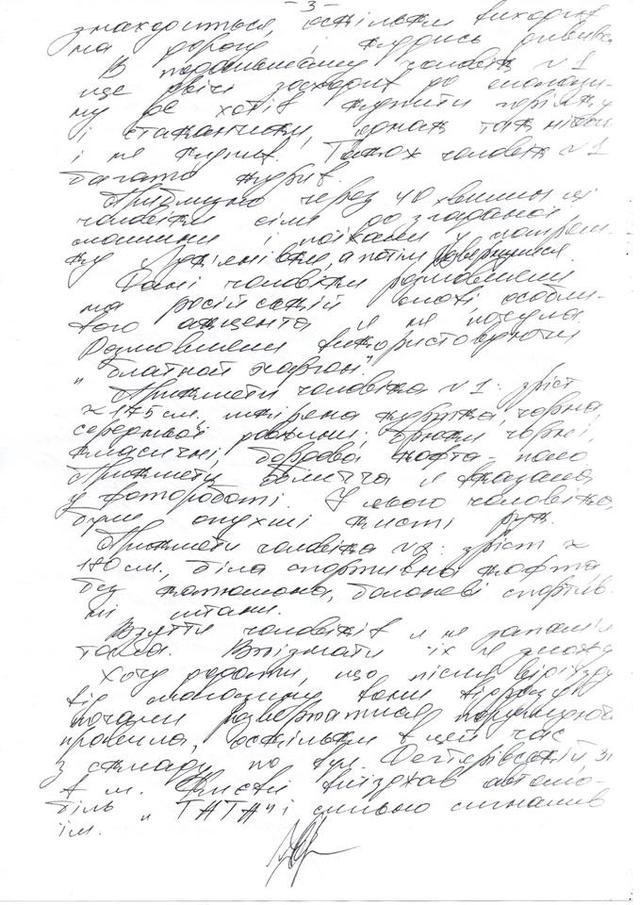 - 3 -
знаходиться, оскільки виходив
на дорогу і кудись дивився
В подальшому чоловік №1
ще двічі заходив до магази-
ну де хотів купити горілку
і стаканчики, однак так нічого
і не купив. Також чоловік №1
багато курив.
Приблизно через 40 хвилин ці
чоловіки сіли до згаданої
машини і поїхали у напрям-
ку Лук'янівки, а потім розвернулися.
Дані чоловіки розмовляли
на російській мові, особли-
вого акцента я не почула.
Розмовляли використовуючи
"блатной жаргон".
Прикмети чоловіка №1: зріст
≈ 175 см. шкіряна куртка чорна,
середньої довжини, брюки чорні,
класичні, бордова кофта - поло
Прикмети обличчя я вказала
у фотороботі. У цього чоловіка
були опухші кисті рук.
Прикмети чоловіка №2: зріст ≈
180 см., біла спортивна кофта
без капюшона, балоневі спортив-
ні штани.
Взуття чоловіків я не запам'я
тала. Впізнати їх не зможу
Хочу додати, що після від'їзду
від магазину вони відразу
почали розвертатися порушуючи
правила, оскільки в цей час
з складу по вул. Дегтярівській, 31
в м. Києві виїзжав автомо-
біль "ТАТА" і сильно сигналив
їм.